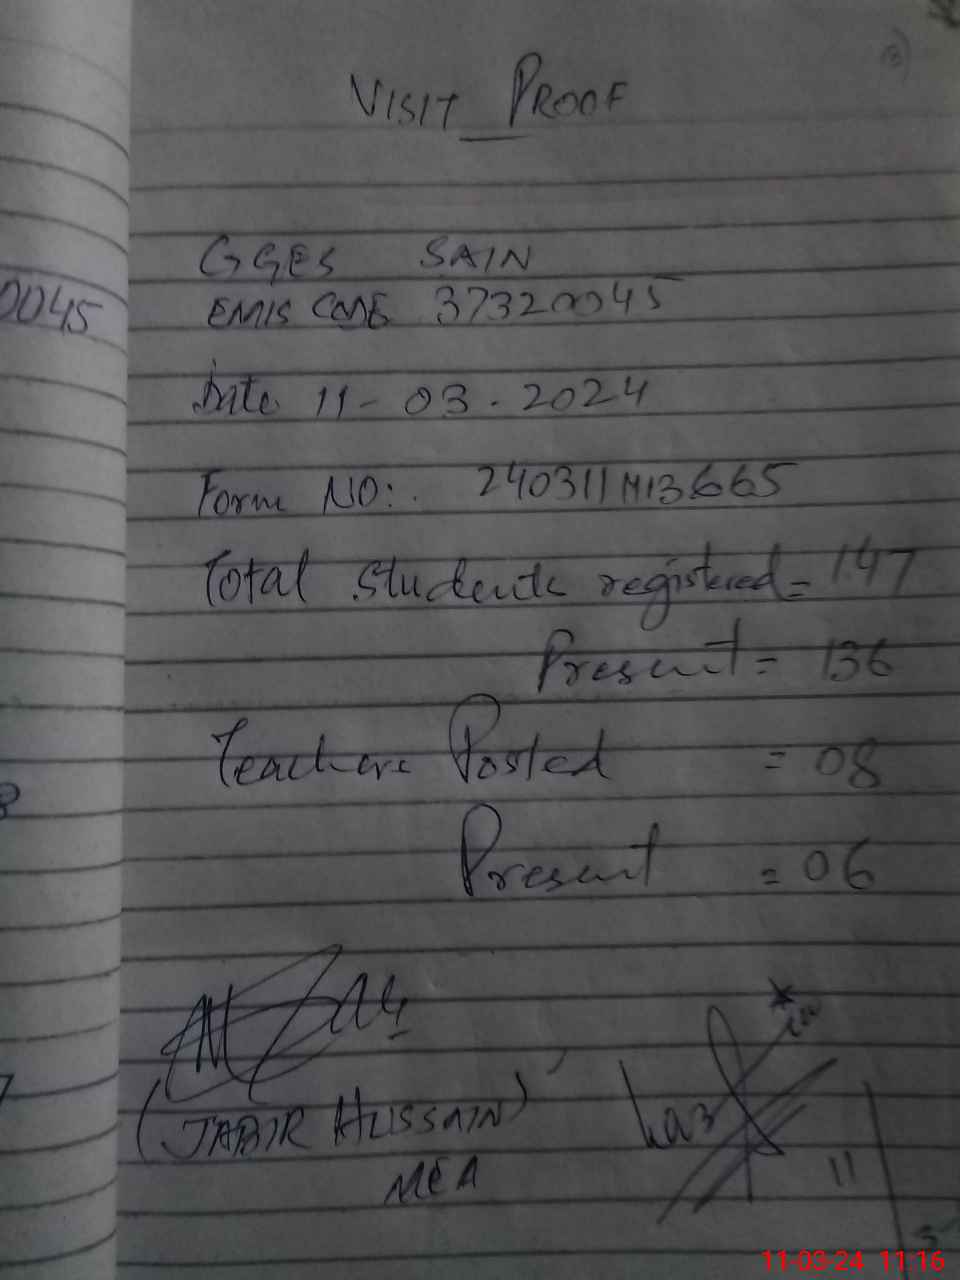 VISIT PROOF
GGES SAIN
0045
EMIS CODE 37320045
Date 11-03.2024
Form NO:. 240311M13665
Total students registered = 147
Present = 136
Teachers Posted = 08
Present = 06
(JABIR HUSSAIN)
MEA
11
11-03-24 11:16